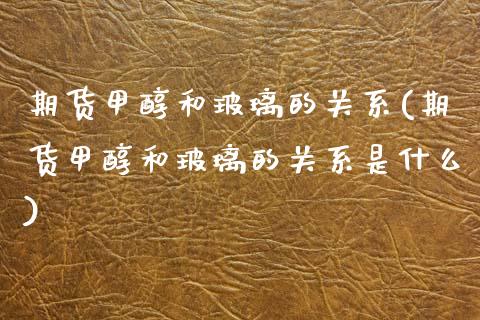 期货甲醇和玻璃的关系(期
货甲醇和玻璃的关系是什么
)